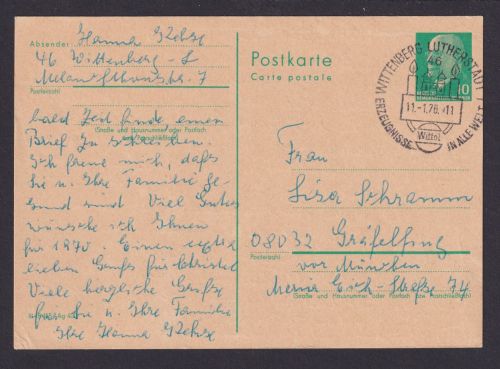 Absender: Hanna
46 Wittenberg - L
Melanchthonstr. 7
Postleitzahl
bald Zeit finde einen
Brief zu schreiben.
(Straße und Hausnummer oder Postfach
Ich freue mich, daß
Sie u. Ihre Familie ge
sund sind. Viel Gutes
wünsche ich Ihnen
für 1970. Einen extra
lieben Gruß für Christel
Viele herzliche Grüße
für Sie u. Ihre Familie
Ihre Hanna
Postkarte
Carte postale
WITTENBERG LUTHERSTADT 1
46
11.-1.70.-11
Wittol
ERZEUGNISSE IN ALLE WELT
10
Frau
Lisa Schramm
08032 Gräfelfing
Postleitzahl
vor München
Maria Eich-Straße 74
(Straße und Hausnummer oder Postfach bzw. Postschließfach)